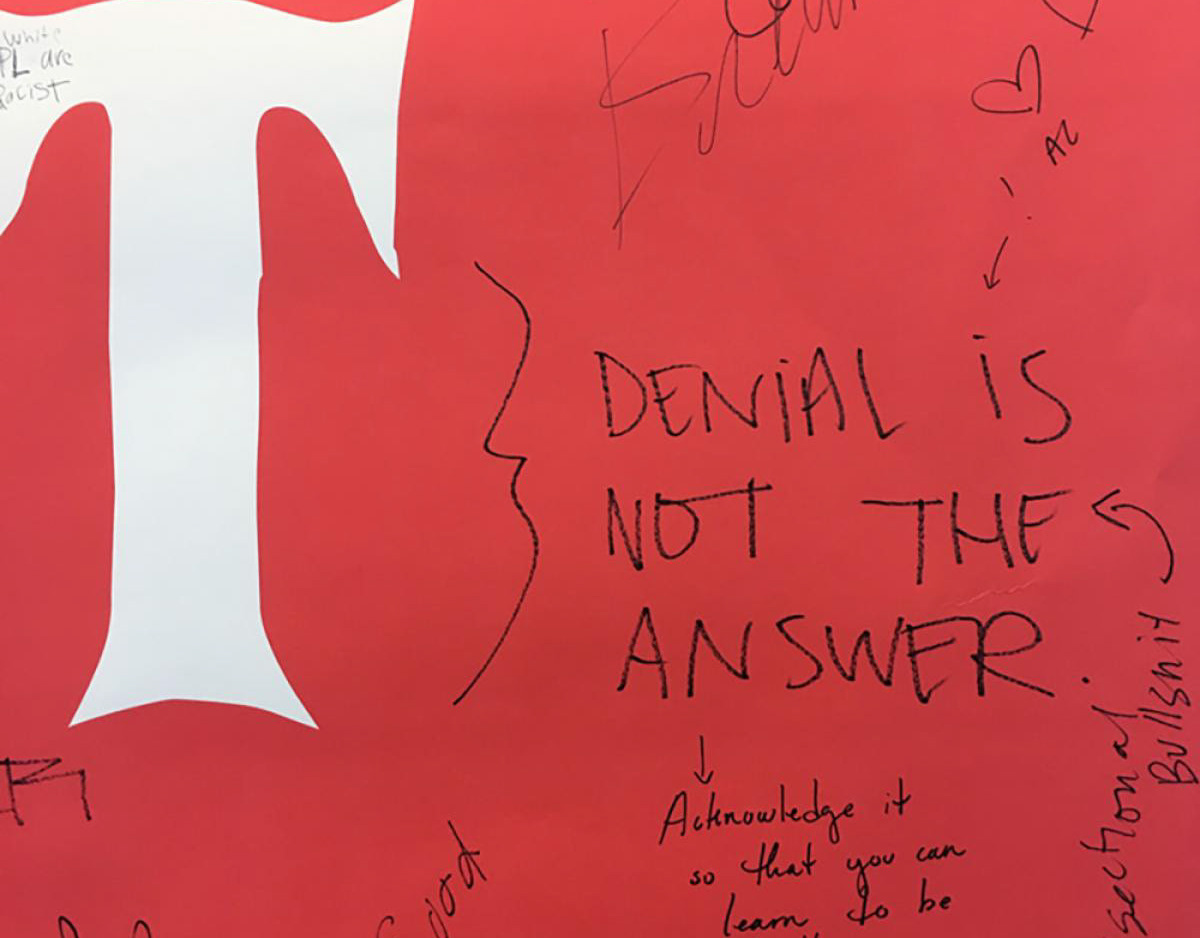 White
PL are
racist
T
AZ
!
DENIAL IS
NOT THE
ANSWER.
Acknowledge it
so that you can
learn to be
sectional
Bullshit